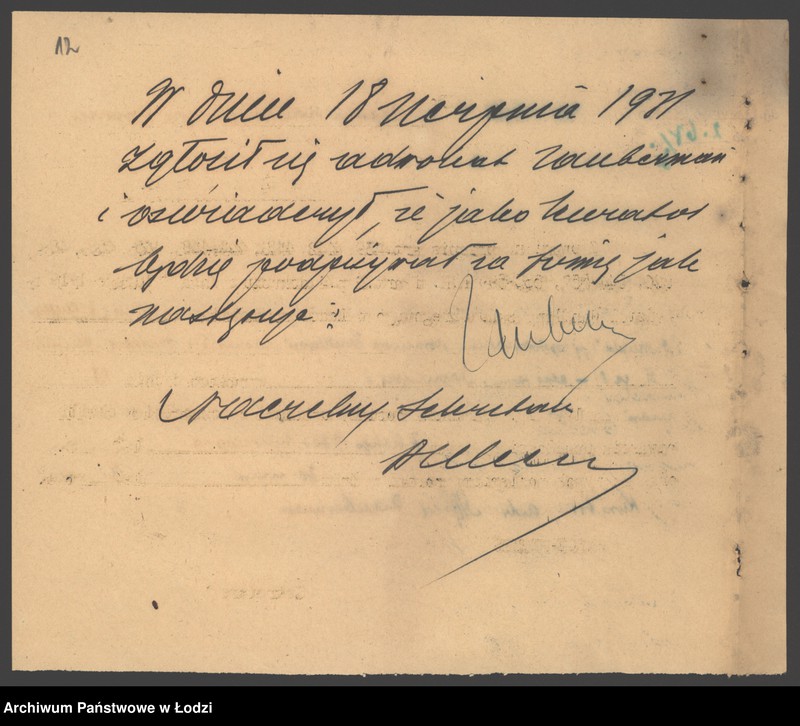 12
W dniu 18 sierpnia 1931
zgłosił się adwokat Zauberman
i oświadczył, że jako kurator
będzie podpisywał za firmę jak
następuje:
Naczelny Sekretarz
Archiwum Państwowe w Łodzi